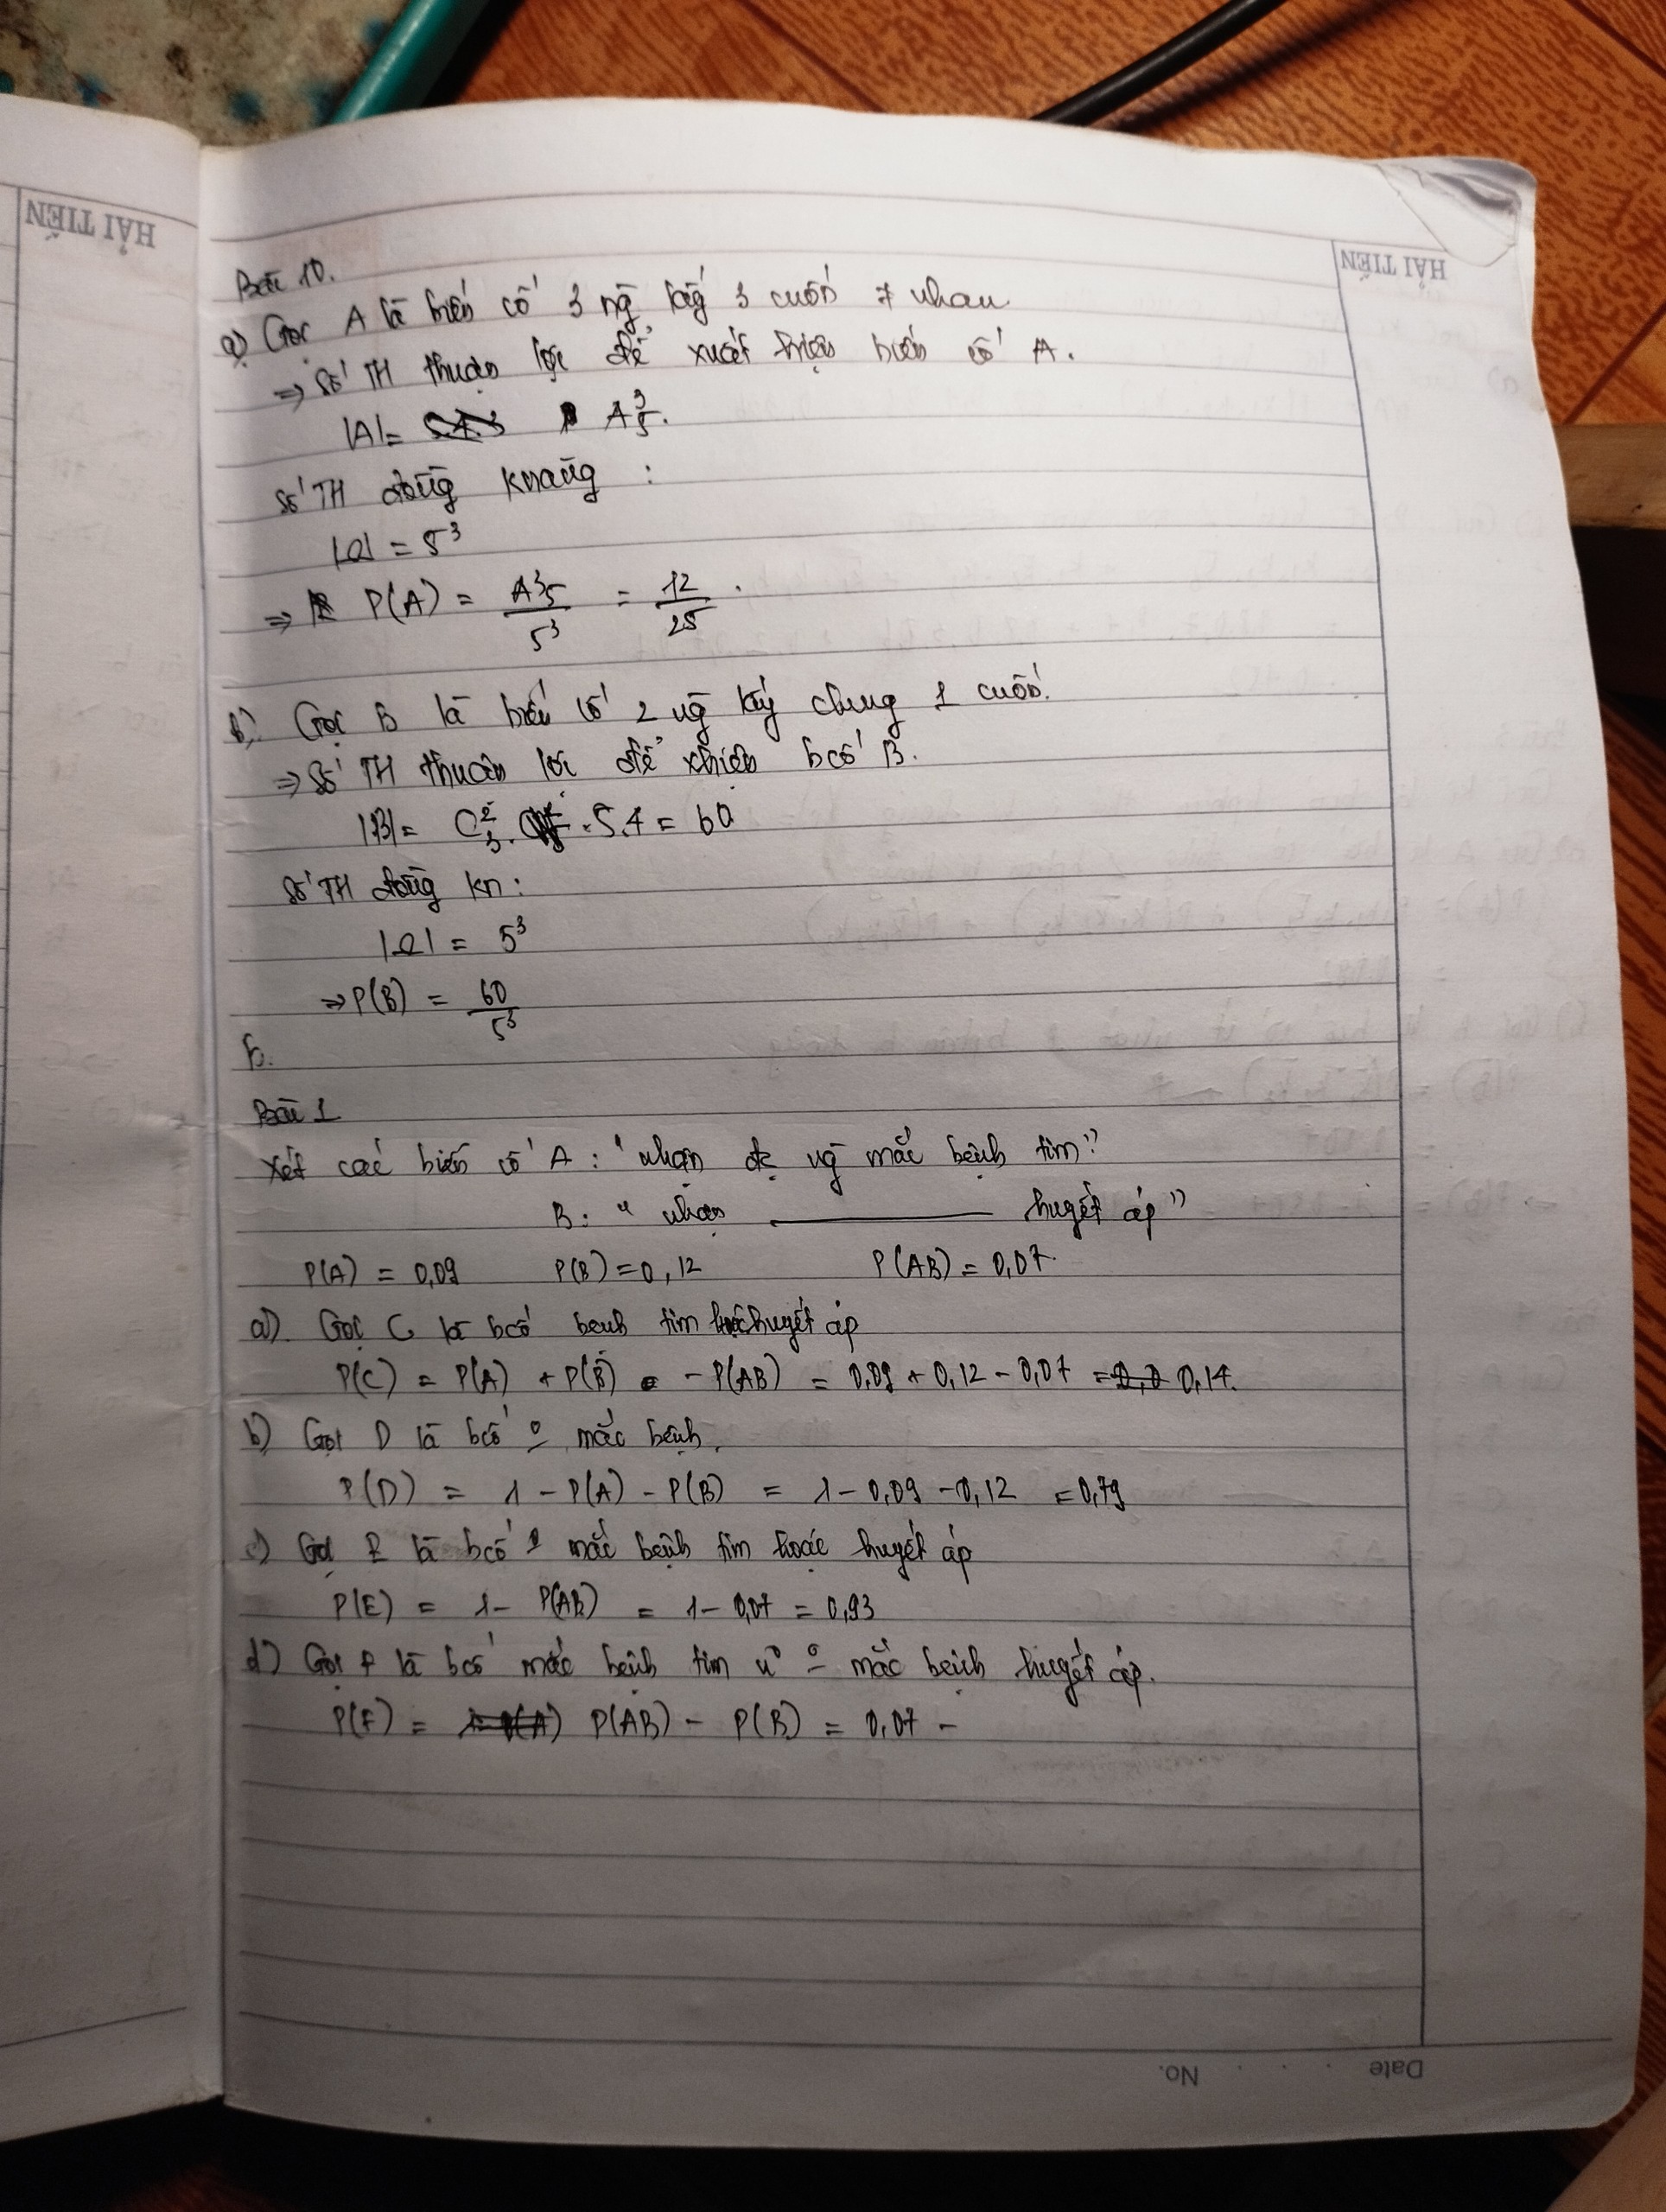 HẢI TIẾN
HẢI TIẾN
Bài 10.
a) Gọi A là biến cố 3 ng lấy 3 cuốn ≠ nhau
⇒ Số TH thuận lợi để xuất hiện biến cố A.
|A| = A³₅.
Số TH đồng khả năng :
|Ω| = 5³
⇒ P(A) = A³₅ / 5³ = 12 / 25 .
b) Gọi B là biến cố 2 ng lấy chung 1 cuốn.
⇒ Số TH thuận lợi để xhiện bcố B.
|B| = C²₃ . 5.4 = 60
Số TH đồng kn :
|Ω| = 5³
⇒ P(B) = 60 / 5³
b.
Bài 1
Xét các biến cố A : "nhận đc ng mắc bệnh tim"
B : "nhận ———— huyết áp"
P(A) = 0,09 P(B) = 0,12 P(AB) = 0,07.
a) Gọi C là bcố bệnh tim hoặc huyết áp
P(C) = P(A) + P(B) - P(AB) = 0,09 + 0,12 - 0,07 = 0,14.
b) Gọi D là bcố mắc bệnh.
P(D) = 1 - P(A) - P(B) = 1 - 0,09 - 0,12 = 0,79
c) Gọi E là bcố mắc bệnh tim hoặc huyết áp
P(E) = 1 - P(AB) = 1 - 0,07 = 0,93
d) Gọi F là bcố mắc bệnh tim mắc bệnh huyết áp.
P(F) = P(AB) - P(B) = 0,07 -
No. Date